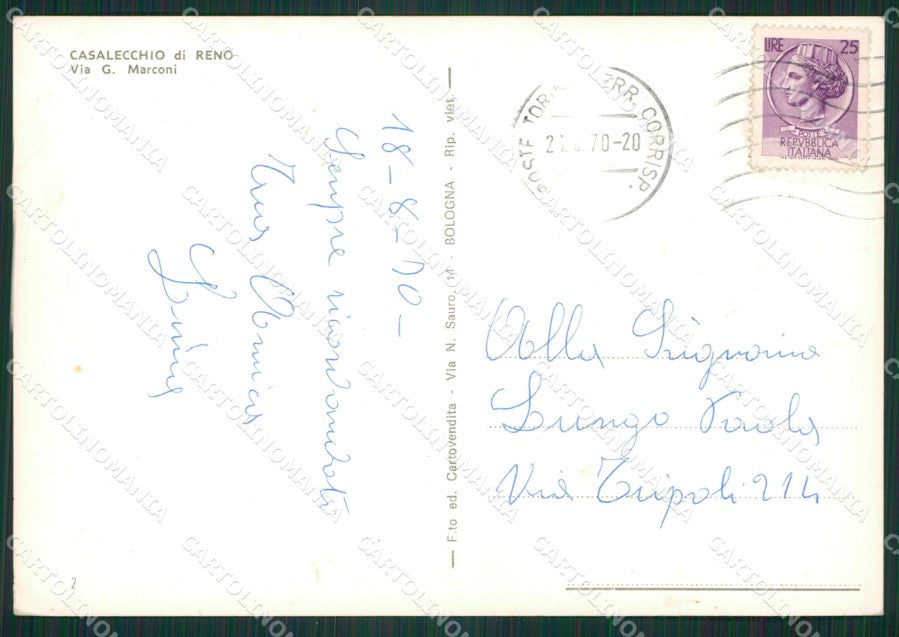 CASALECCHIO di RENO
Via G. Marconi
18-8-70-
Sempre ricordandoti
tua Amica
Luisa
F.to ed. Cartovendita - Via N. Sauro, 14 - BOLOGNA - Rip. viet.
CORRISP.
70-20
LIRE 25
POSTE
REPVBBLICA
ITALIANA
Alla Signorina
Lungo Paola
Via Tripoli 214
2
CARTOLINOMANIA